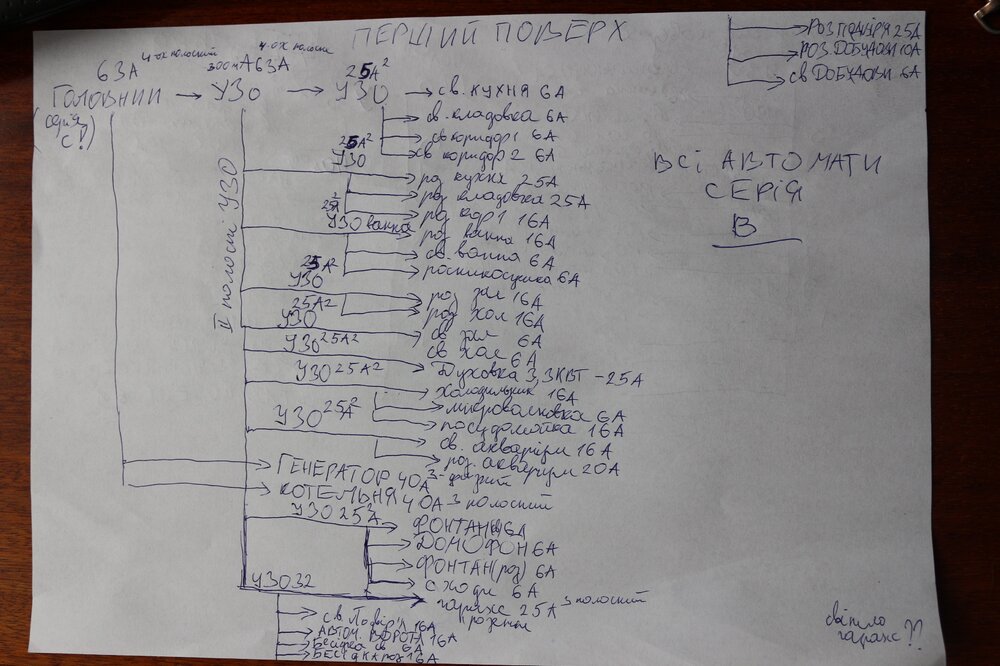 ПЕРШИЙ ПОВЕРХ
РОЗ ПОДВІР'Я 25А
РОЗ ДОБУДОВИ 10А
СВ ДОБУДОВИ 6А
63А 4-ох полюсний 300mA 63А 4-ох полюсн 25А²
ГОЛОВНИЙ → УЗО → УЗО → св. КУХНЯ 6А
(серія С!)
св. кладовка 6А
св коридор 1 6А
25А² УЗО св коридор 2 6А
ВСІ АВТОМАТИ
СЕРІЯ
В
II полюсні УЗО
роз кухня 25А
роз кладовка 25А
25А² роз кор 1 16А
УЗО ванна роз ванна 16А
св. ванна 6А
25А²
УЗО
роз зал 16А
25А² роз хол 16А
УЗО св зал 6А
УЗО 25А² св хол 6А
УЗО 25А² Духовка 3,3КВТ - 25А
холодильник 16А
УЗО 25А² мікроволновка 6А
посудомойка 16А
св. акваріум 16А
роз. акваріум 20А
ГЕНЕРАТОР 40А 3-фазний
КОТЕЛЬНЯ 40А 3 полюсний
УЗО 25А²
ФОНТАН 6А
ДОМОФОН 6А
ФОНТАН (роз) 6А
сходи 6А
УЗО 32 гараж 25А 3 полюсний
розетки
св Подвір'я 16А
АВТОМ. ВОРОТА 16А
Бесідка св 6А
БЕСІДКА роз 16А
світло
гараж ??